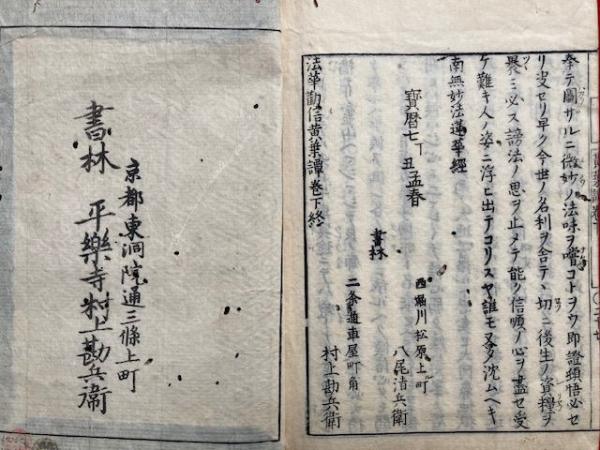 奉テ圖サルニ微妙ノ法味ヲ嘗コトヲウ即證頓悟必セ
リ沒セリ早ク今世ノ名利ヲ舎テ、切ニ後生ノ資糧ヲ
畏ミ必ス謗法ノ思ヲ止メテ能ク信順ノ心ヲ盡セ受
ケ難キ人ノ姿ニ浮ヒ出テコリスヤ誰モ又タ沈ムヘキ
南無妙法蓮華經
寶暦七丁丑孟春
書林
西堀川松原上町
八尾清兵衛
二条通車屋町角
村上勘兵衛
法華勸信黄葉譚巻下終
京都東洞院通三條上町
書林 平樂寺村上勘兵衛